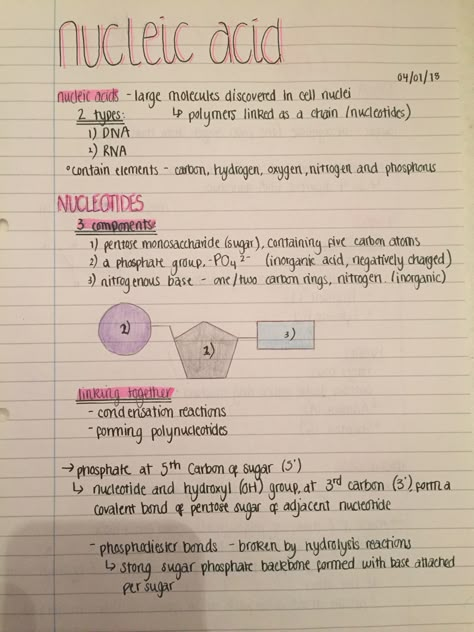 nucleic acid
04/01/18
nucleic acids - large molecules discovered in cell nuclei
2 types: ↳ polymers linked as a chain (nucleotides)
1) DNA
2) RNA
°contain elements - carbon, hydrogen, oxygen, nitrogen and phosphorus
NUCLEOTIDES
3 components
1) pentose monosaccharide (sugar), containing five carbon atoms
2) a phosphate group. -PO4 2- (inorganic acid, negatively charged)
3) nitrogenous base - one/two carbon rings, nitrogen. (inorganic)
2)
1)
3)
linking together
- condensation reactions
- forming polynucleotides
→ phosphate at 5th Carbon of sugar (5')
↳ nucleotide and hydroxyl (OH) group, at 3rd carbon (3') form a
covalent bond of pentose sugar of adjacent nucleotide
- phosphodiester bonds - broken by hydrolysis reactions
↳ strong sugar phosphate backbone formed with base attached
per sugar